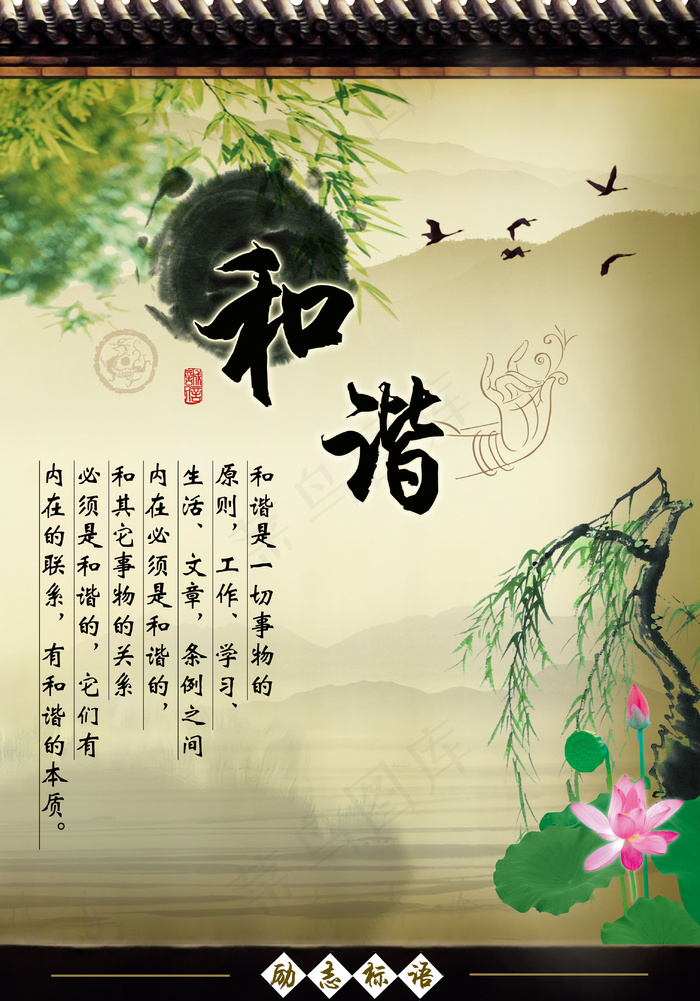 和谐
和谐是一切事物的
原则，工作、学习、
生活、文章，条例之间
内在必须是和谐的，
和其它事物的关系
必须是和谐的，它们有
内在的联系，有和谐的本质。
励志标语